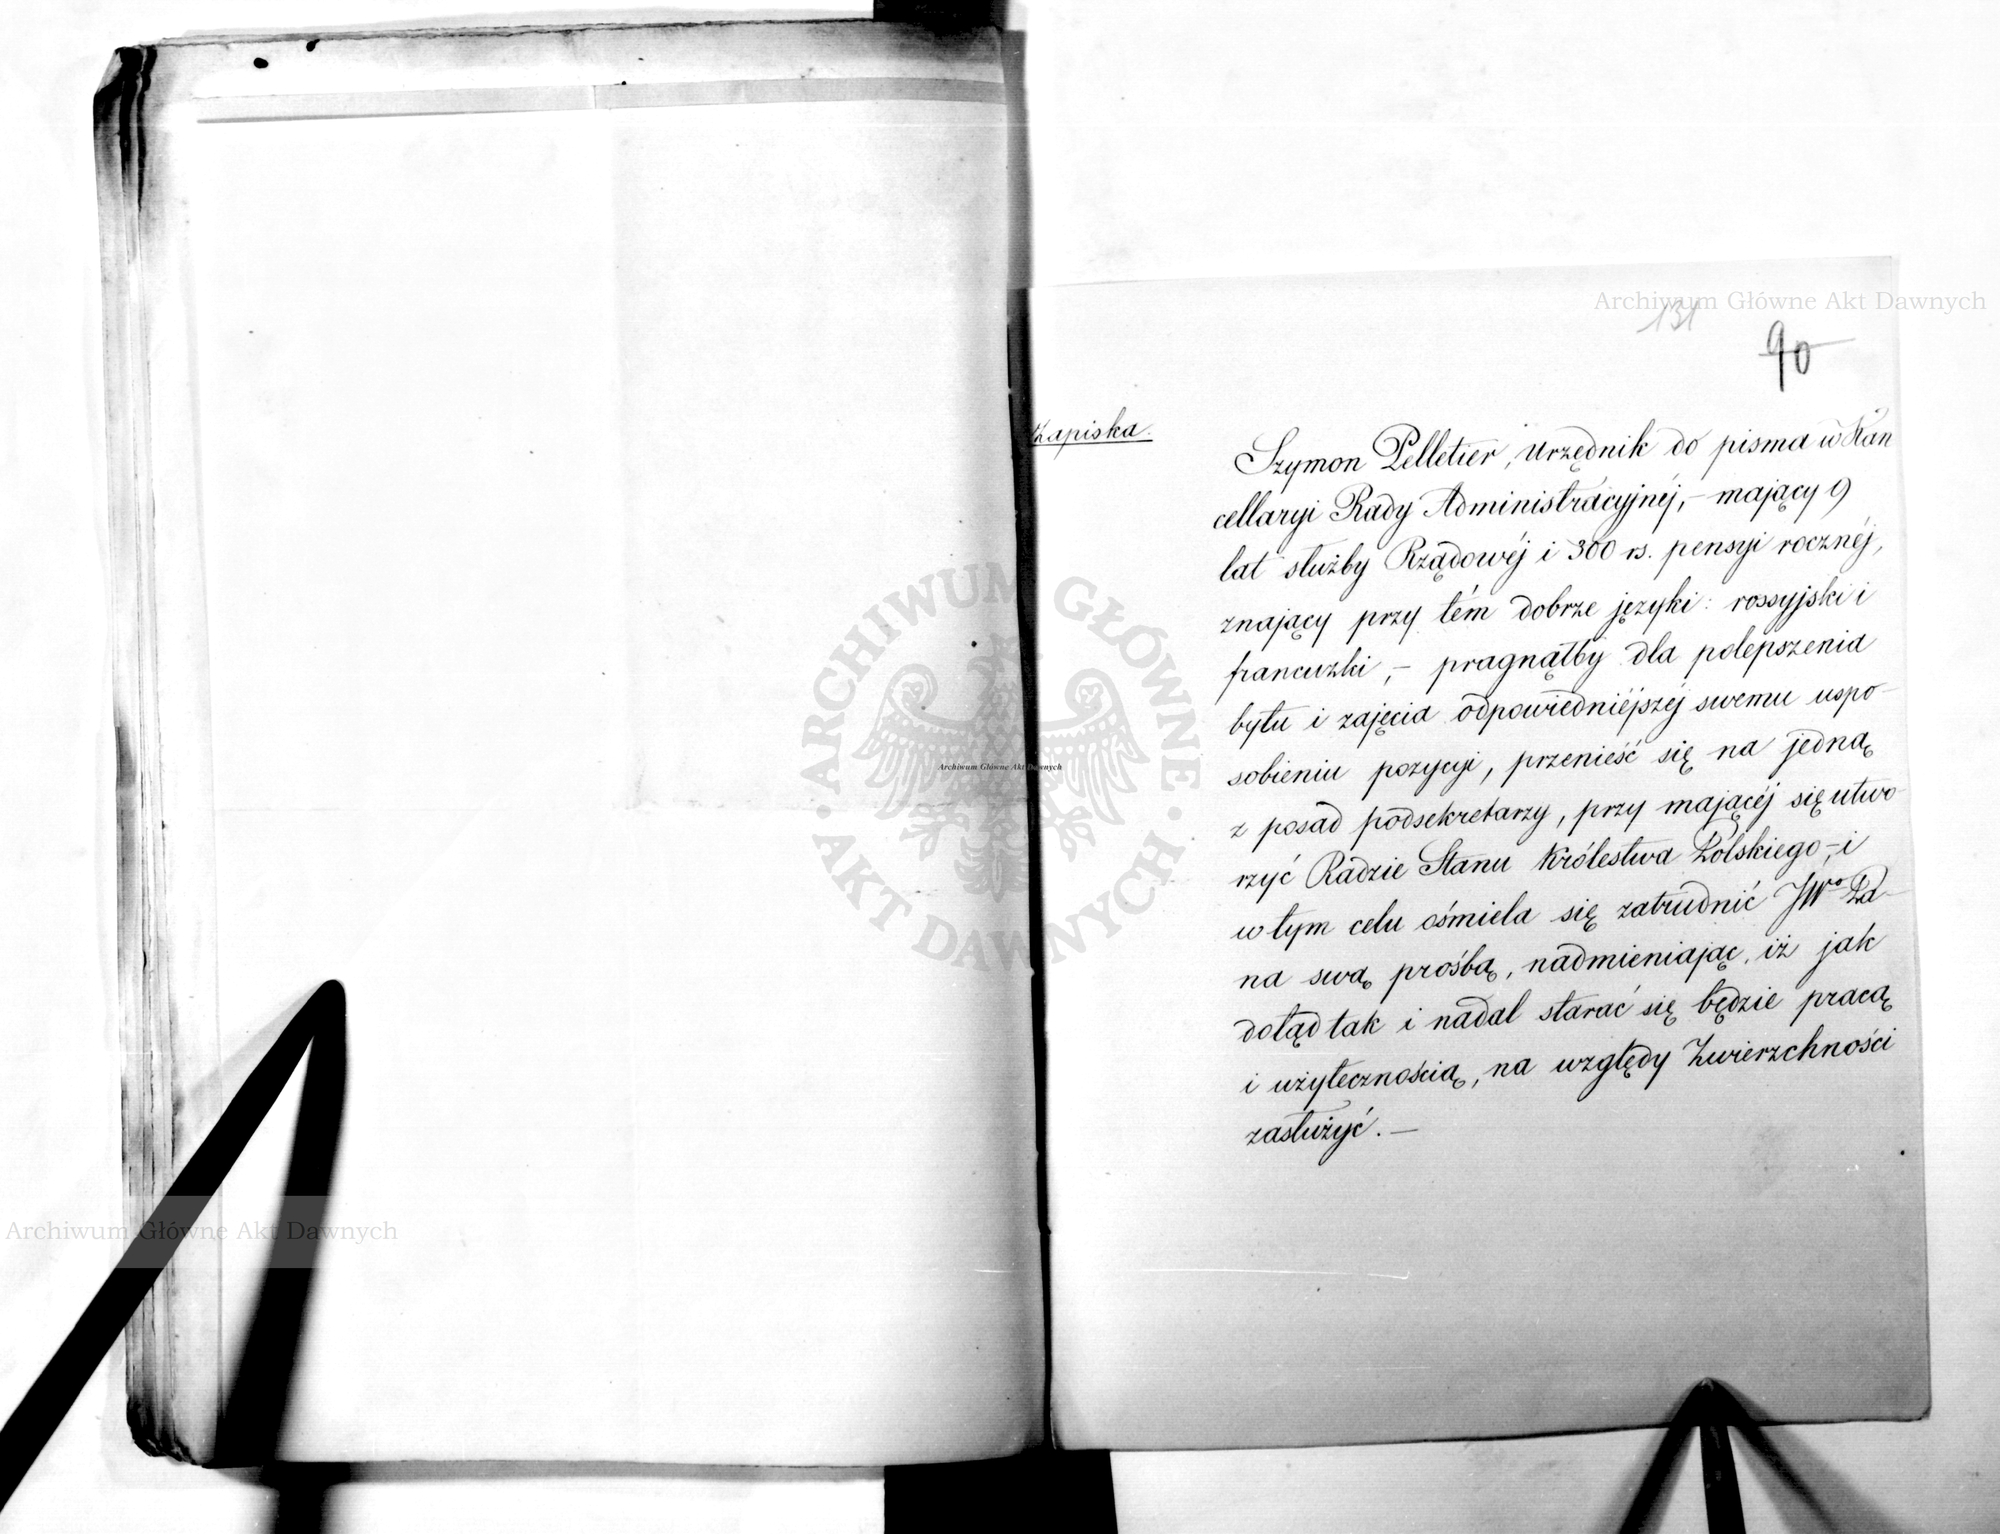 131
90
Zapiska.
Szymon Pelletier, Urzędnik do pisma w Kan
cellaryi Rady Administracyjnéj, – mający 9
lat służby Rządowéj i 300 rs. pensyi rocznéj,
znający przy tém dobrze języki: rossyjski i
francuzki, – pragnąłby dla polepszenia
bytu i zajęcia odpowiedniéjszéj swemu uspo-
sobieniu pozycyi, przenieść się na jedną
z posad podsekretarzy, przy mającéj się utwo-
rzyć Radzie Stanu Królestwa Polskiego, – i
w tym celu ośmiela się zatrudnić JWo Pa-
na swą prośbą, nadmieniając, iż jak
dotąd tak i nadal starać się będzie pracą
i użytecznością, na względy Zwierzchności
zasłużyć. –
Archiwum Główne Akt Dawnych
ARCHIWUM GŁÓWNE AKT DAWNYCH
Archiwum Główne Akt Dawnych
Archiwum Główne Akt Dawnych